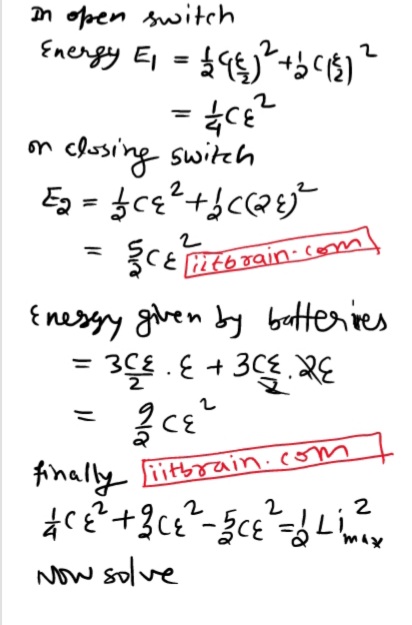 In open switch
Energy E₁ = ½C(ε/2)² + ½C(ε/2)²
= ¼Cε²
on closing switch
E₂ = ½Cε² + ½C(2ε)²
= 5/2 Cε² iitbrain.com
Energy given by batteries
= 3Cε/2 . ε + 3Cε/2 . 2ε
= 9/2 Cε²
finally iitbrain.com
¼Cε² + 9/2 Cε² - 5/2 Cε² = ½ L i²max
Now solve